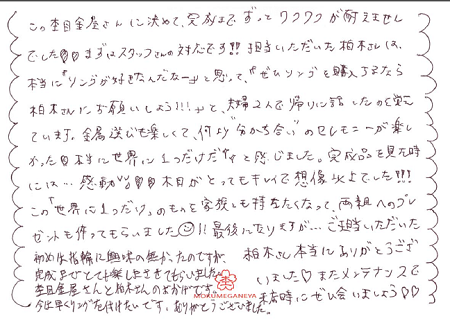 この杢目金屋さんに決めて、完成までずっとワクワクが耐えません
でした♡♡まずはスタッフさんの対応です!!担当いただいた柏木さんは、
本当に『リングが好きなんだなー』と思って、『ぜひリングを購入するなら
柏木さんにお願いしよう!!!』と、夫婦2人で帰りに話したのを覚え
ています。金属選びも楽しくて、何より"分かち合い"のセレモニーが楽し
かった♡本当に世界に1つだけだ"と感じました。完成品を見た時
には…感動♡♡木目がとってもキレイで想像以上でした!!!
この『世界に1つだけ』のものを家族にも持たせたくなって、両親へのプレ
ゼントも作ってもらいました!!最後になりますが…ご担当いただいた
柏木さん本当にありがとうござ
いました♡またメンテナンスで
来店時にぜひ会いましょう♡♡
初めは指輪に興味の無かったのですが、
完成までとても楽しませてもらいました。
杢目金屋さんと柏木さんのおかげです。
今は早くリングを付けたいです。ありがとうございました。
MOKUMEGANEYA